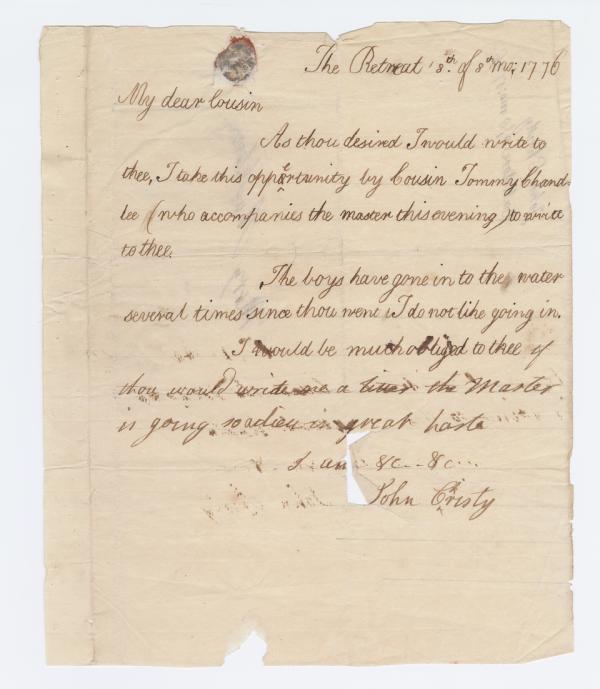 The Retreat 18th of 8th mo; 1776
My dear Cousin
As thou desired I would write to
thee, I take this opportunity by Cousin Tommy Chand-
lee (who accompanies the master this evening) to write
to thee.
The boys have gone in to the water
several times since thou went I do not like going in.
I would be much obliged to thee if
thou would write me a letter the Master
is going so adieu in great haste
I am &c &c
John Cristy